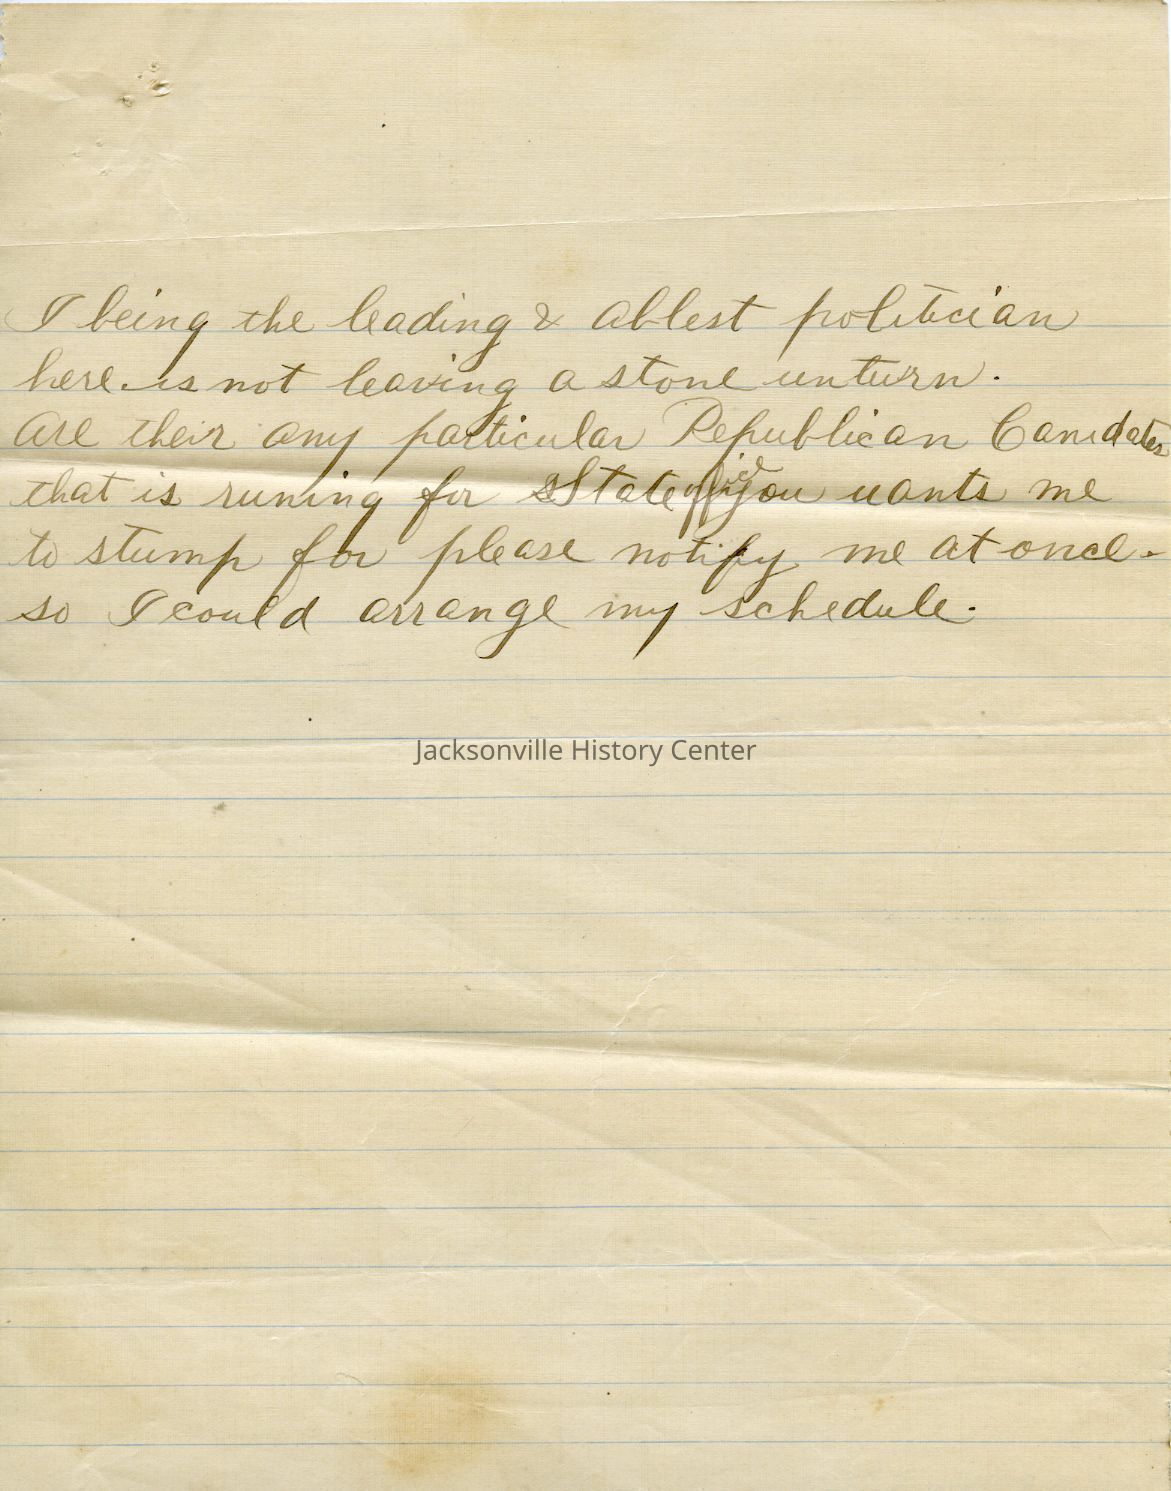 I being the leading & ablest politician
here. is not leaving a stone unturn.
Are their any particular Republican Canidates
that is runing for State you wants me
to stump for please notify me at once.
so I could arrange my schedule.
Jacksonville History Center